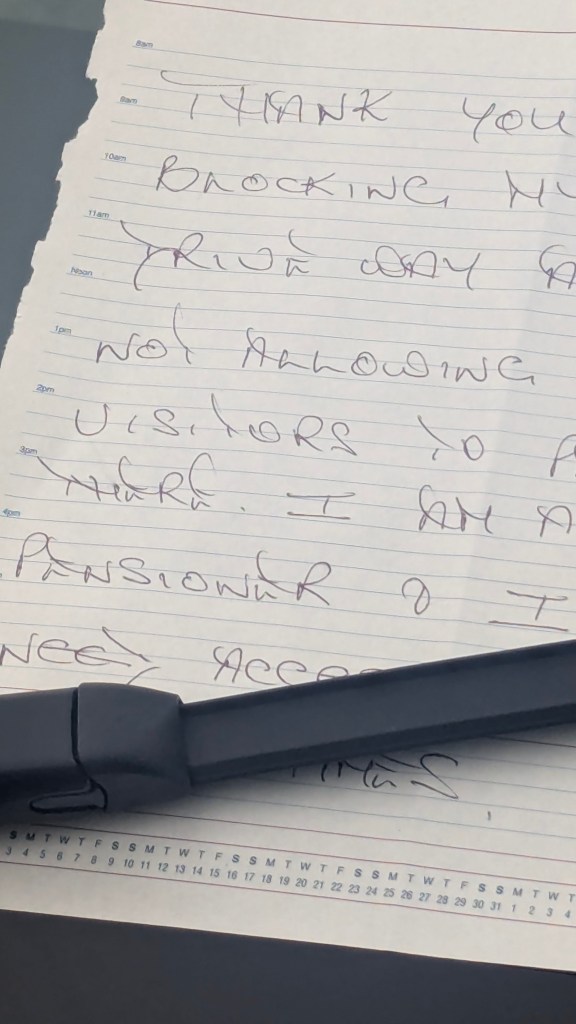 8am
9am THANK YOU
10am BLOCKING MY
11am DRIVE WAY
Noon
1pm NOT ALLOWING
2pm VISITORS TO
3pm THERE. I AM A
4pm
PENSIONER & I
NEED
TIMES.
S M T W T F S S M T W T F S S M T W T F S S M T W T F S S M T W T
3 4 5 6 7 8 9 10 11 12 13 14 15 16 17 18 19 20 21 22 23 24 25 26 27 28 29 30 31 1 2 3 4